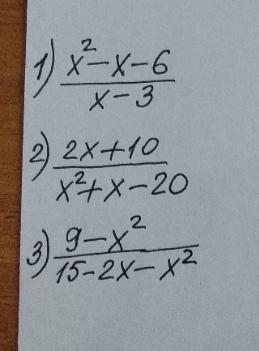 1) x²-x-6
x-3
2) 2x+10
x²+x-20
3) 9-x²
15-2x-x²